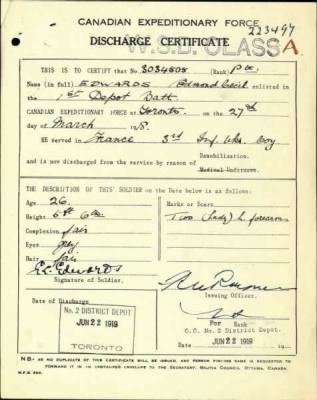 CANADIAN EXPEDITIONARY FORCE
223497
DISCHARGE CERTIFICATE
W.S.B. CLASS A
THIS IS TO CERTIFY that No. 3034505 (Rank) Pte.
Name (in full) EDWARDS Edmond Cecil enlisted in
the 1st Depot Batt.
CANADIAN EXPEDITIONARY FORCE at Toronto. on the 27th
day of March 1918.
HE served in France 3rd
and is now discharged from the service by reason of Demobilization.
Medical Unfitness.
THE DESCRIPTION OF THIS SOLDIER on the Date below is as follows:
Age 26
Height 5ft 6in
Complexion fair
Eyes grey
Hair fair
Marks or Scars
Tattoo (Lady) L. forearm
E.C. Edwards
Signature of Soldier.
Issuing Officer.
Date of Discharge
No. 2 DISTRICT DEPOT
JUN 22 1919
TORONTO
For Rank
O.C. No. 2 District Depot.
JUN 22 1919
Date 19
NB- AS NO DUPLICATE OF THIS CERTIFICATE WILL BE ISSUED, ANY PERSON FINDING SAME IS REQUESTED TO
FORWARD IT IN AN UNSTAMPED ENVELOPE TO THE SECRETARY, MILITIA COUNCIL, OTTAWA, CANADA.